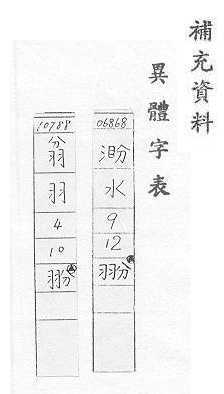 補充資料
異體字表
06868
水
9
12
翂
10788
羽
4
10
翂